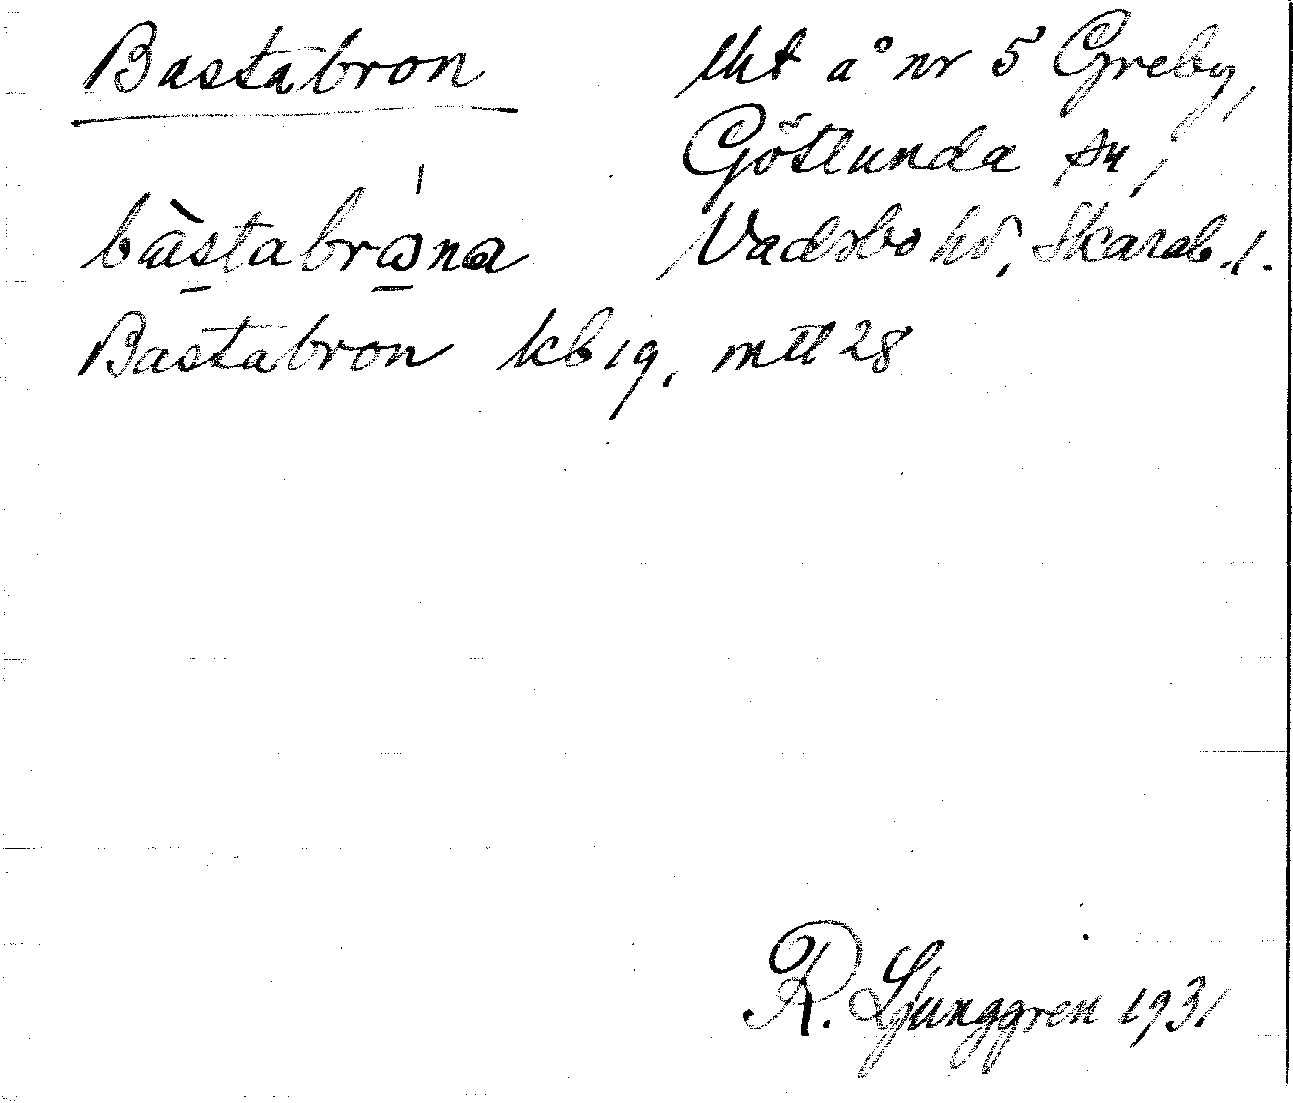 Bastabron lht å nr 5 Greby,
Götlunda sn,
bàstabrɷ́na Vadsbo hd, Skarab. l.
Bastabron kb 19, mtl 28
R. Ljunggren 1931